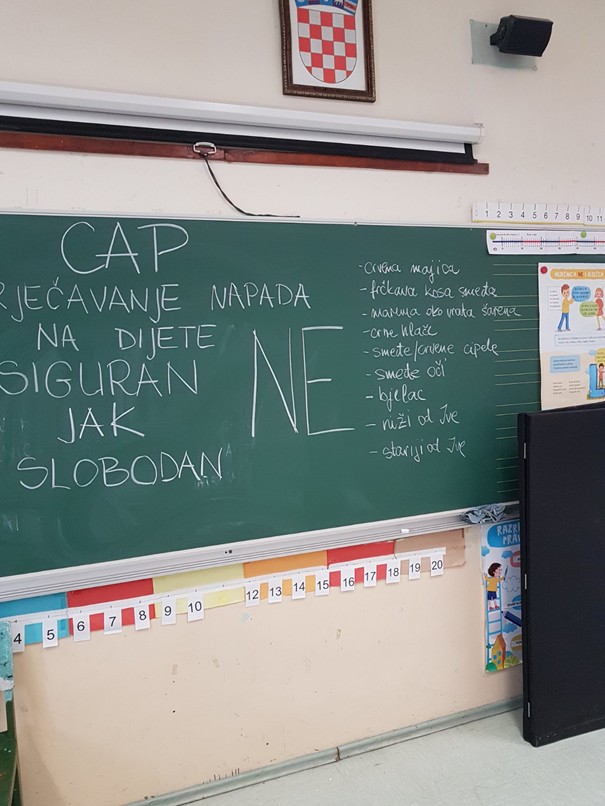 CAP
RJEČAVANJE NAPADA
NA DIJETE
SIGURAN
JAK
SLOBODAN
NE
-crvena majica
-frčkava kosa smeđa
-marama oko vrata šarena
-crne hlače
-smeđe/crvene cipele
-smeđe oči
-bjelac
-niži od Ive
-stariji od Ive
1 2 3 4 5 6 7 8 9 10 11
4 5 6 7 8 9 10 12 13 14 15 16 17 18 19 20